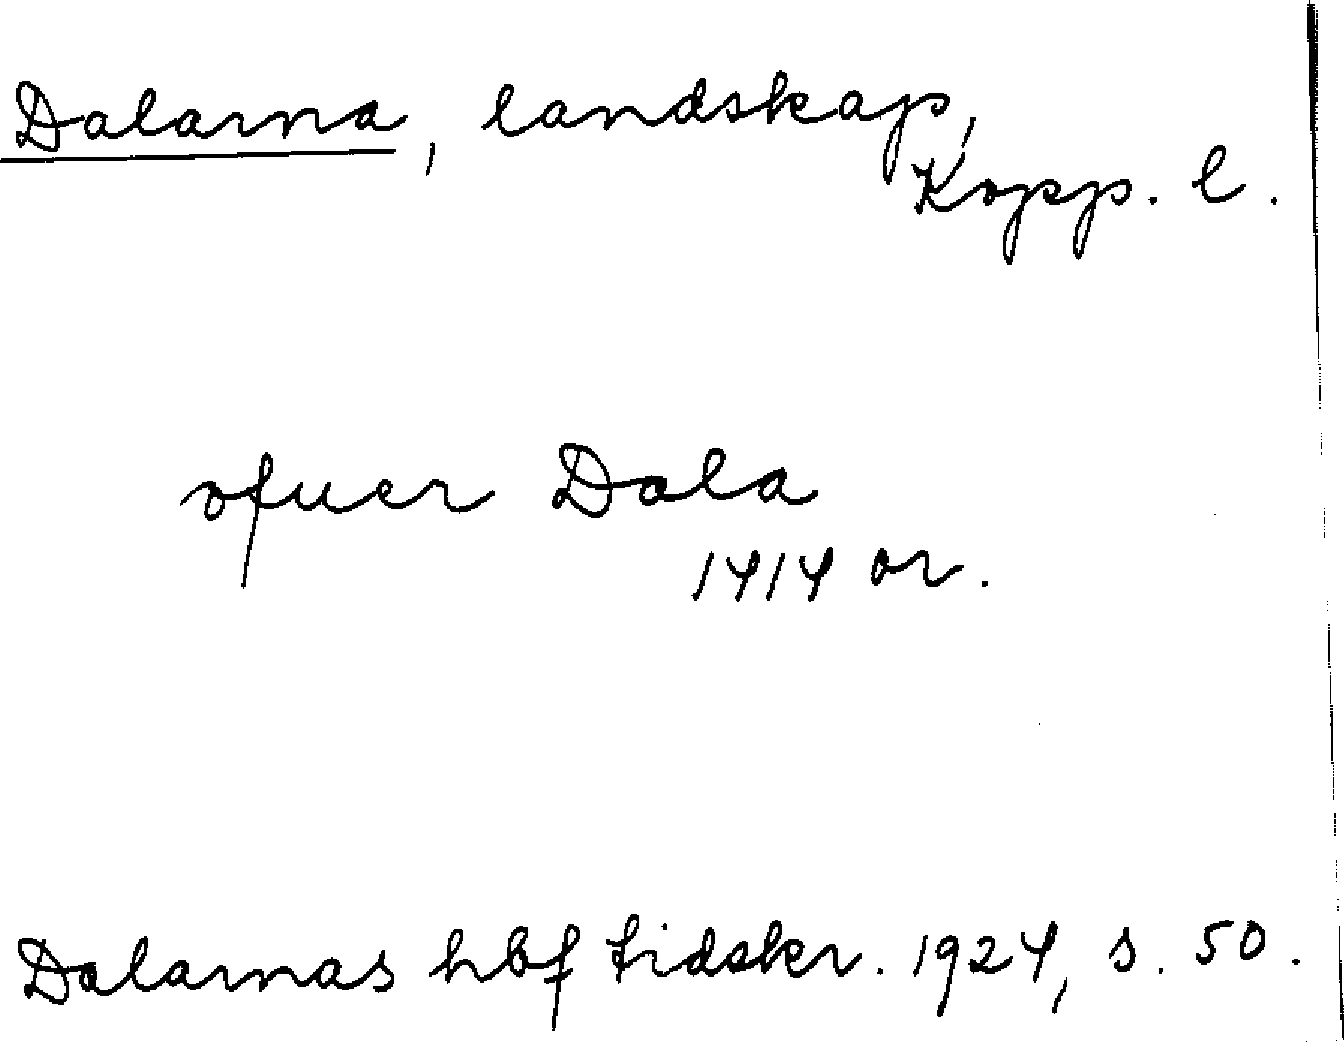 Dalarna, landskap,
Kopp. l.
ofuer Dala
1414 or.
Dalarnas hbf tidskr. 1924, s. 50.